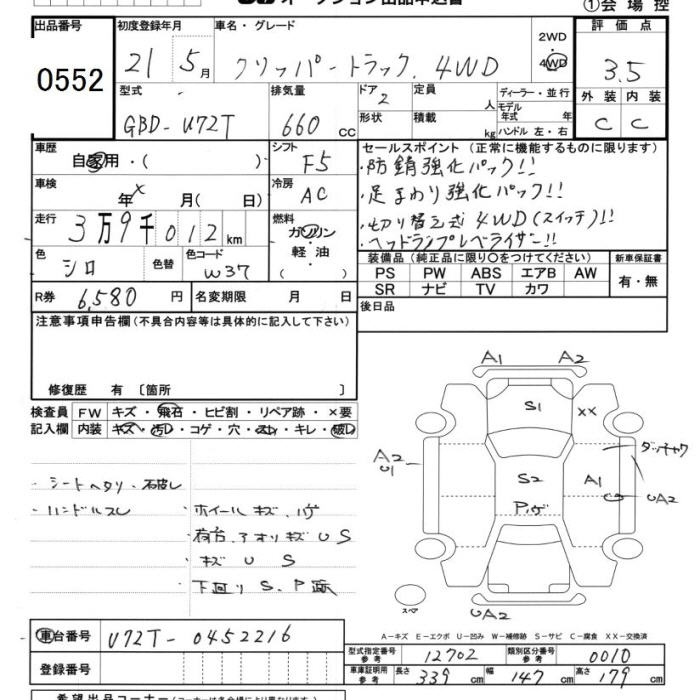 ①会場控
出品番号
0552
初度登録年月
21 5月
車名・グレード
クリッパートラック. 4WD
2WD
4WD
評価点
3.5
外装 内装
C C
型式
GBD-U72T
排気量
660 CC
ドア 2
形状
定員 人
積載 kg
ディーラー・並行
モデル年式 年
ハンドル 左・右
車歴
自家用・( )
シフト
F5
車検
年× 月( 日)
冷房
AC
走行
3万9千012 km
燃料
ガソリン
軽油
色
シロ
色替
色コード
W37
R券 6,580 円
名変期限 月 日
セールスポイント (正常に機能するものに限ります)
・防錆強化パック!!
・足まわり強化パック!!
・切り替え式4WD(スイッチ)!!
・ヘッドランプレベライザー!!
装備品 (純正品に限り〇をつけてください)
PS PW ABS エアB AW
SR ナビ TV カワ
新車保証書
有・無
後日品
注意事項申告欄(不具合内容等は具体的に記入して下さい)
修復歴 有 〔箇所 〕
検査員記入欄
FW キズ・飛石・ヒビ割・リペア跡・×要
内装 キズ・汚レ・コゲ・穴・スレ・キレ・破レ
・シートヘタリ・破レ
・ハンドルスレ
・ホイールキズ、ハゲ
・荷台、アオリキズ U S
・キズ U S
・下廻り S、P跡
A1 A2
S1
XX
A2
U1
ダッチャク
S2
A1
Pハゲ
UA2
スペア
UA2
A-キズ E-エクボ U-凹み W-補修跡 S-サビ C-腐食 XX-交換済
車台番号 U72T-0452216
登録番号
型式指定番号 参考 12702
類別区分番号 参考 0010
車庫証明用 参考 長さ 339 cm 幅 147 cm 高さ 179 cm
希望出品コーナー